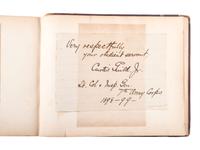 Very respectfully
your obedient servant
Curtis Guild Jr.
Lt. Col & Insp. Gen.
7th Army Corps
1898-99-